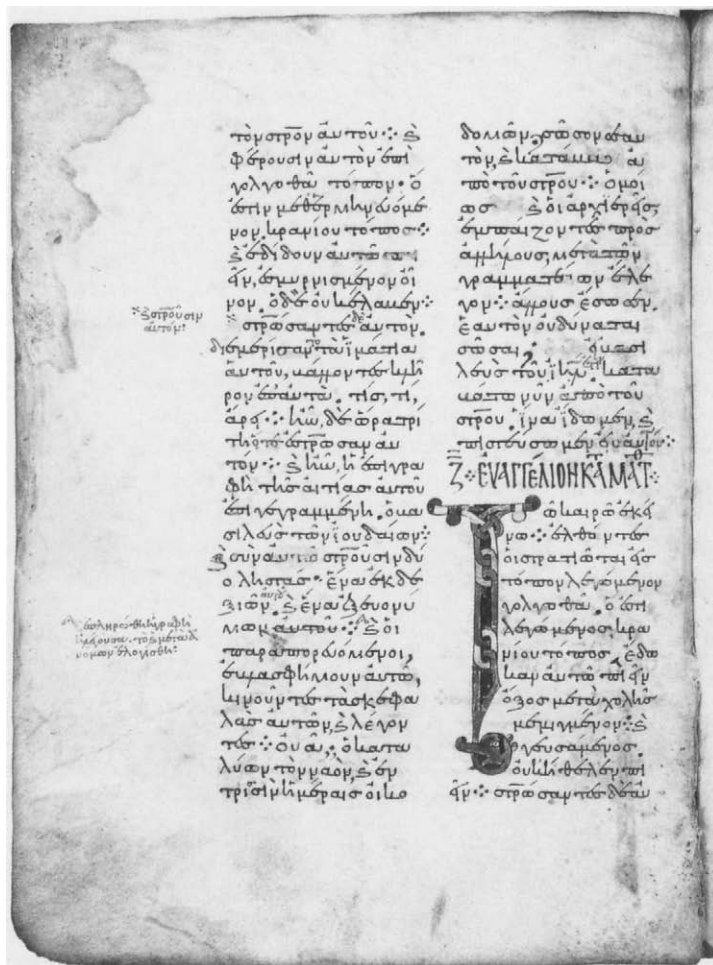 τὸν στρον αὐτοῦ ·:· ϗ
φέρουσιν αὐτὸν ἐπὶ
γολγοθᾶ τόπον· ὅ
ἐστιν μεθερμηνευόμε
νον, κρανίου τόπος ·:·
ϗ ἐδίδουν αὐτῶ πι
εῖν, ἐσμυρνισμένον οἶ
νον. ὁ δὲ οὐκ ἔλαβεν ·:·
ϗ στροῦσιν
αὐτόν:
στρώσαντες δὲ αὐτὸν.
διεμέρισαν τὰ ἱμάτια
αὐτοῦ, βάλλοντες κλῆ
ρον ἐπ' αὐτὰ. τίς, τί,
ἄρη ·:· ἦν, δὲ ὥρα τρί
τη ὅτε ἐστρωσαν αὐ
τόν ·:· ϗ ἦν, ἡ ἐπιγρα
φὴ τῆς αἰτίας αὐτοῦ
ἐπιγεγραμμένη. ὁ βα
σιλεὺς τῶν ἰουδαίων ·:·
ϗ σὺν αὐτῶ στροῦσιν δύ
ο ληστάς· ἕνα ἐκ δε
ξιῶν. ϗ ἕνα ἐξ εὐωνύ
μων αὐτοῦ ·:· ϗ οἱ
ἐπληρώθη ἡ γραφὴ
ἡ λέγουσα. τὸ ϗ μετὰ ἀ
νόμων ἐλογίσθη:
παραπορευόμενοι,
ἐβλασφήμουν αὐτῶ,
κινοῦντες τὰς κεφα
λὰς αὐτῶν, ϗ λέγον
τες ·:· οὐᾶ, ὁ κατα
λύων τὸν ναὸν, ϗ ἐν
τρισὶν ἡμέραις οἰκο
δομῶν, σῶσον σεαυ
τόν, ϗ κατάβα ἀ
πὸ τοῦ στρου ·:· ὁμοί
ως ϗ οἱ ἀρχιερεῖς,
ἐμπαίζοντες πρὸς
ἀλλήλους, μετὰ τῶν
γραμματέων ἔλε
γον ·:· ἄλλους ἔσωσεν.
ἑαυτὸν οὐ δύναται
σῶσαι, ὁ βασι
λεὺς τοῦ ιηλ ἐστι κατα
βάτω νῦν ἀπὸ τοῦ
στρου. ἵνα ἴδωμεν, ϗ
πιστεύσωμεν ἐν αὐτῶ ·:·
Ζ ·:· ΕΥΑΓΓΕΛΙΟΝ Κ̅Α̅ ΜΑΤΘ ·:·
Τῶ καιρῶ ἐκεί
νω ·:· ἐλθόντες
οἱ στρατιῶται εἰς
τόπον λεγόμενον
γολγοθᾶ. ὅ ἐστι
λεγόμενος, κρα
νίου τόπος, ἔδω
καν αὐτῶ πιεῖν
ὄξος μετὰ χολῆς
μεμιγμένον ·:· ϗ
γευσάμενος.
οὐκ ἤθελεν πι
εῖν ·:· στρώσαντες δὲ αὐ